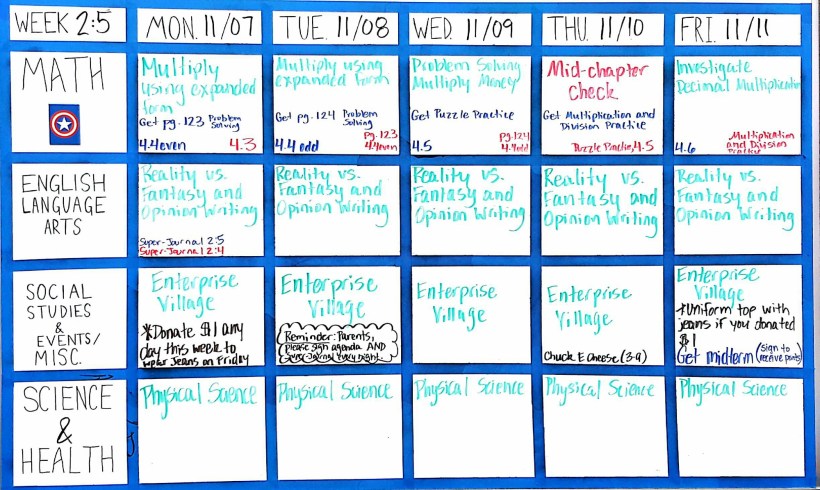 WEEK 2:5
MON. 11/07
TUE. 11/08
WED. 11/09
THU. 11/10
FRI. 11/11
MATH
Multiply
using expanded
form
Get pg. 123 Problem
Solving
4.4 even
4.3
Multiply using
expanded form
Get pg. 124 Problem
Solving
4.4 odd
pg. 123
4.4 even
Problem Solving
Multiply Money
Get Puzzle Practice
4.5
pg. 124
4.4 odd
Mid-chapter
Check
Get Multiplication and
Division Practice
Puzzle Practice, 4.5
Investigate
Decimal Multiplication
4.6
Multiplication
and Division
Practice
ENGLISH
LANGUAGE
ARTS
Reality vs.
Fantasy and
Opinion Writing
Super-Journal 2:5
Super-Journal 2:4
Reality vs.
Fantasy and
Opinion Writing
Reality vs.
Fantasy and
Opinion Writing
Reality vs.
Fantasy and
Opinion Writing
Reality vs.
Fantasy and
Opinion Writing
SOCIAL
STUDIES
&
EVENTS/
MISC.
Enterprise
Village
*Donate $1 any
day this week to
wear jeans on Friday
Enterprise
Village
Reminder: Parents,
please sign agenda AND
Super-Journal every night.
Enterprise
Village
Enterprise
Village
Chuck E Cheese (3-9)
Enterprise
Village
*Uniform top with
jeans if you donated
$1
Get midterm (sign to
receive points)
SCIENCE
&
HEALTH
Physical Science
Physical Science
Physical Science
Physical Science
Physical Science